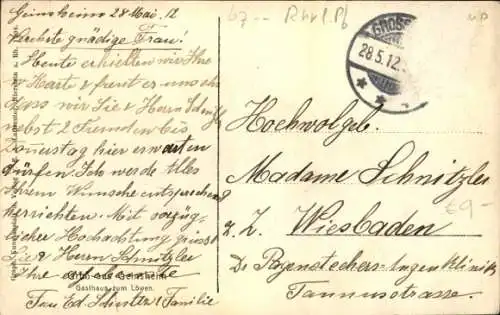 Geinsheim 28 Mai. 12
Verehrte gnädige Frau!
Heute erhielten wir Ihre
w. Karte & freut es uns sehr
dass wir Sie & Herrn Schnitzler
nebst 2 Fremden bis
Donnerstag hier erwarten
dürfen Ich werde Alles
Ihrem Wunsche entsprechend
herrichten. Mit vorzüg-
licher Hochachtung grüsst
Sie & Herrn Schnitzler
Ihre
Frau Ed. Schultz & Familie
Gruß aus Geinsheim
Gasthaus zum Löwen.
GROSS
28.5.12.
Hochwolgeb.
Madame Schnitzler
z. Z. Wiesbaden
Dr Pagenstechers-Augen Klinik
Taunusstrasse.
€9-